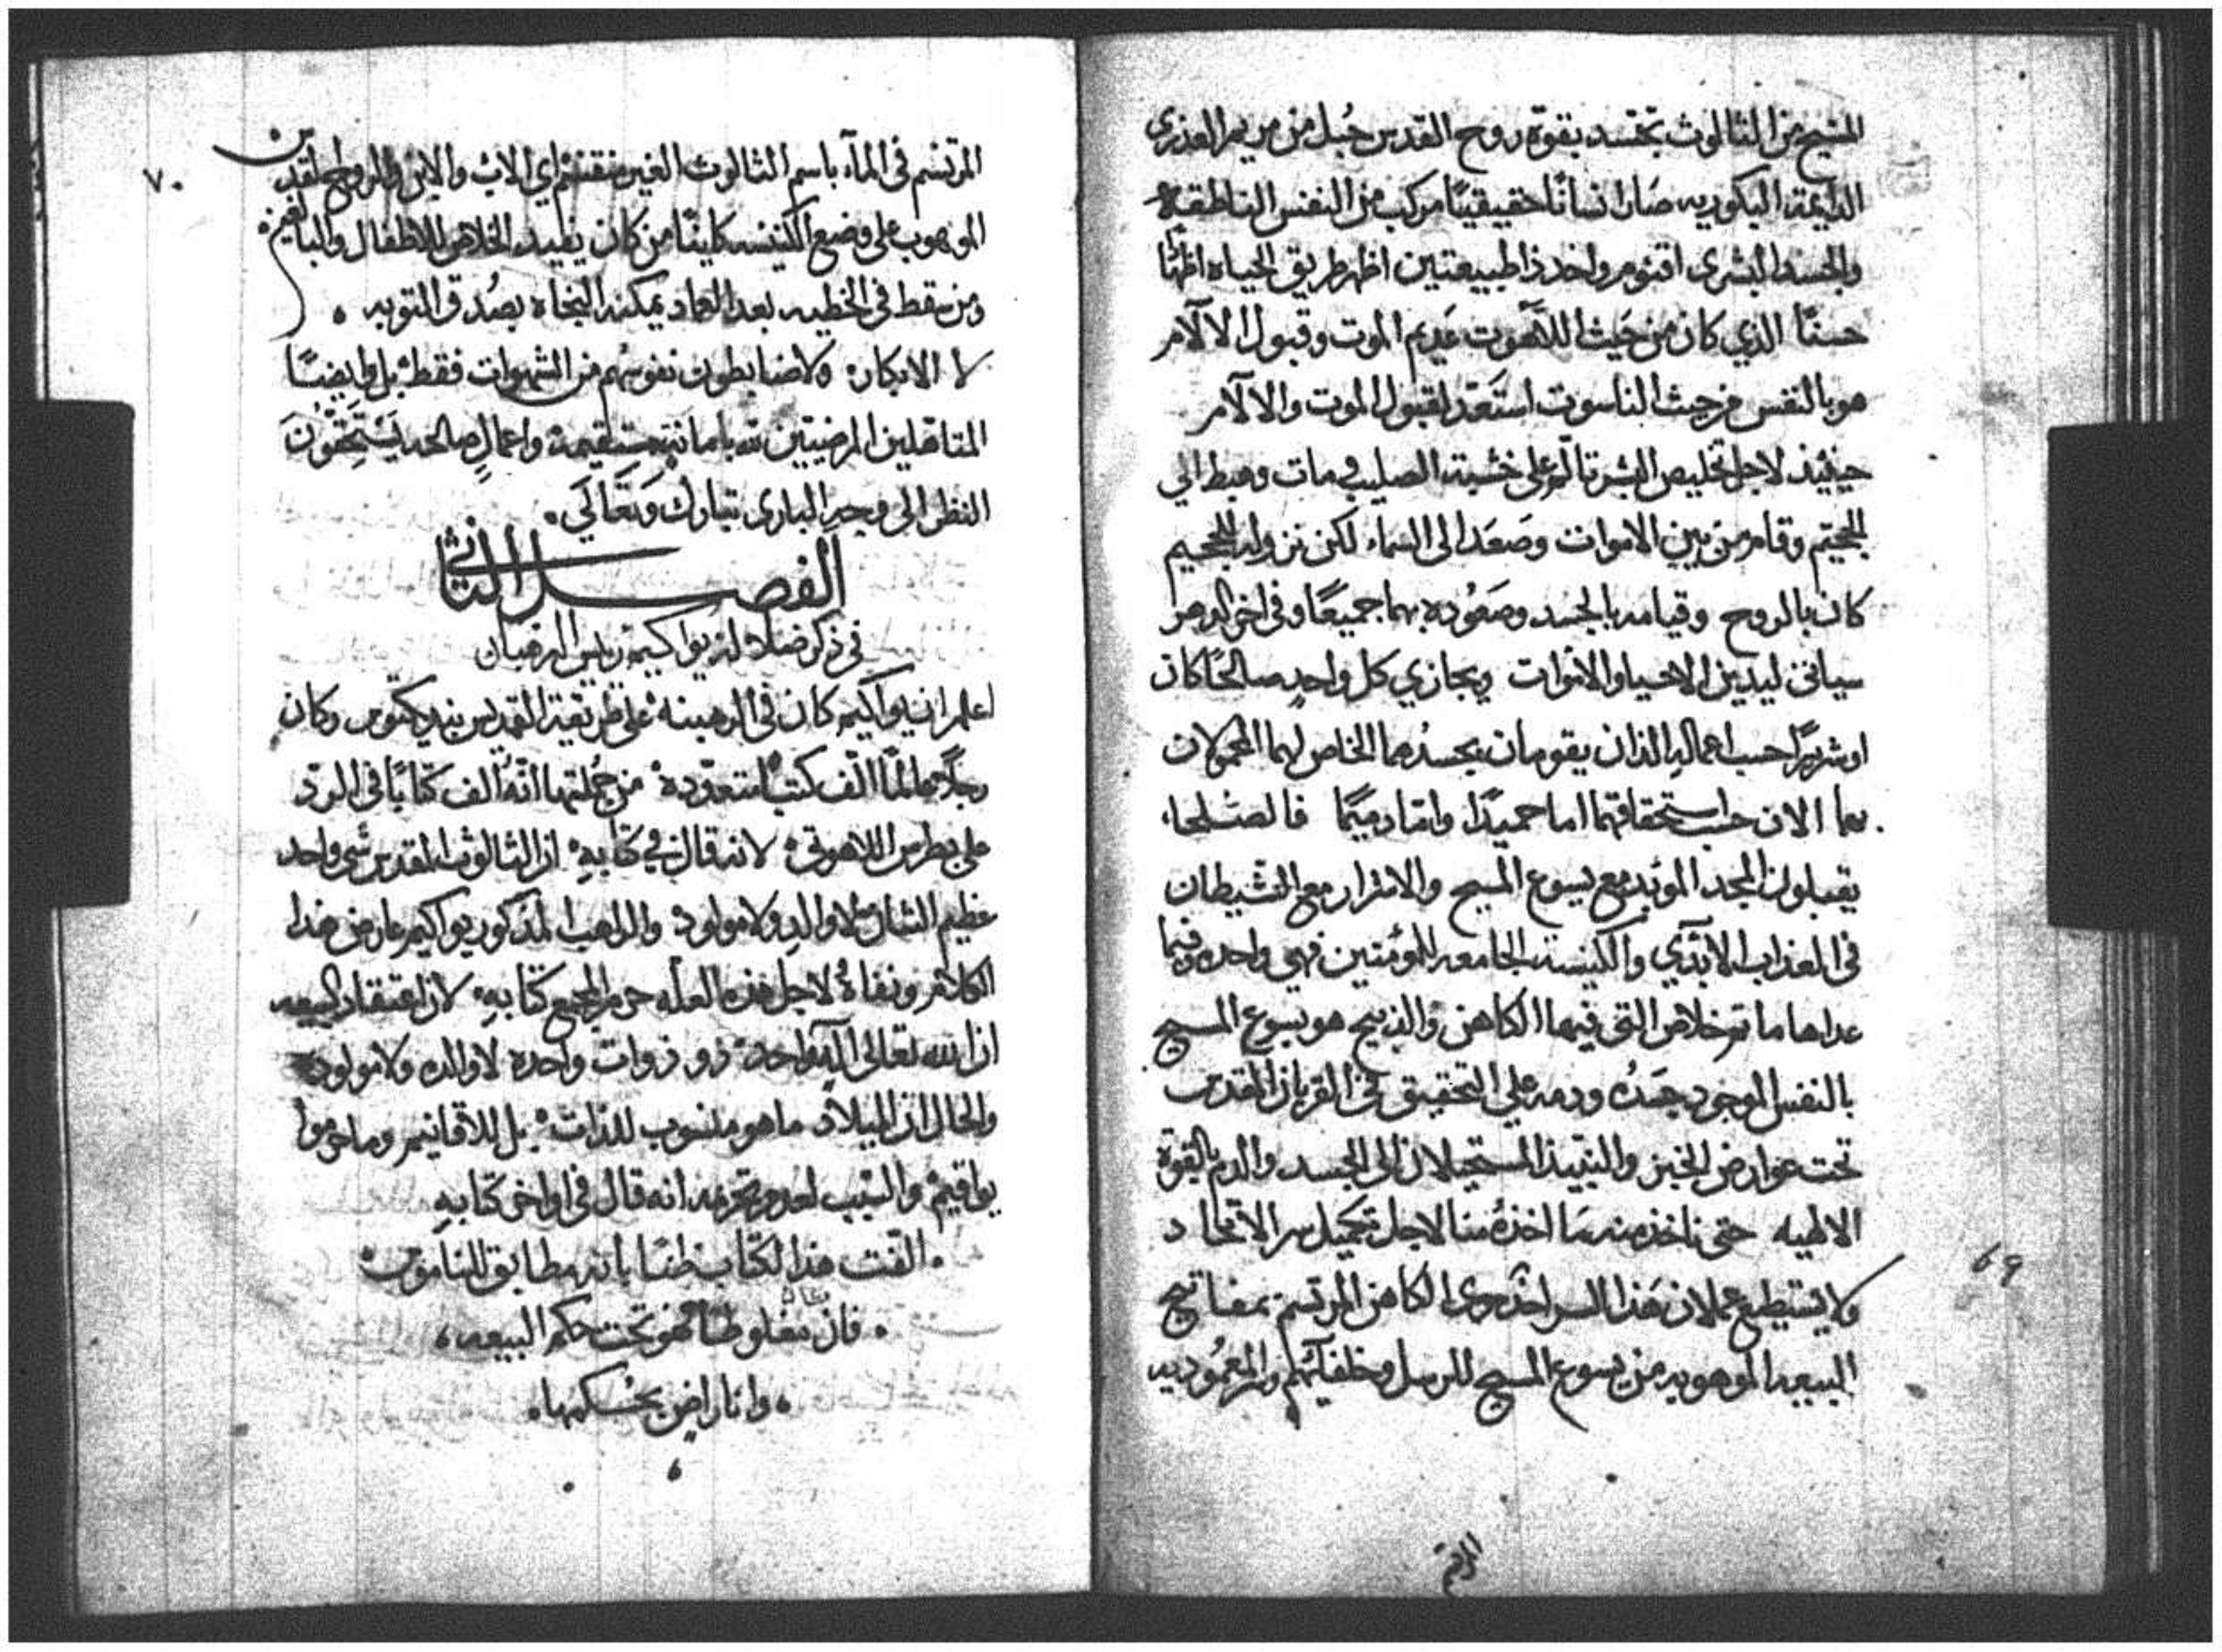 المسيح من الثالوث تجسد بقوة روح القدس حُبل من مريم العذرى
الدايمة البكوريه صَار انسانًا حقيقيًا مركب من النفس الناطقة
والجسد البشرى اقنوم واحد ذا طبيعتين اظهر طريق الحياه اظهارًا
حسنًا الذي كان من حَيث اللاهوت عَديم الموت وقبول الالآم
هو بالنفس من حيث الناسوت استَعَد لقبول الموت والالآم
حينيذ لاجل تخليص البشر تألم على خشبة الصليب ومات وهبط الي
الجحيم وقام من بين الاموات وصَعَد الى السماء لكن نزوله للجحيم
كان بالروح وقيامه بالجسد وصَعُوده بهما جميعًا وفي اخر الدهر
سياتى ليدين الاحيا والاموات ويجازي كل واحدٍ صالحًا كان
او شريرًا حسب اعماله الذان يقومان بجسدُهما الخاص لهما المحمولان
بهما الان حسب استحقاقهما اما حميدًا واما دميمًا فالصُلحاء
يقبلون المجد الموبد مع يسوع المسيح والاشرار مع الشيطان
في العذاب الابدّي والكنيسة الجامعه للمؤمنين فهي واحده وفيما
عداها ما تم خلاص التى فيها الكاهن والذبيح هو يسوع المسيح
بالنفس الموجود جَسَدُه ودمه علي التحقيق في القربان المقدس
تحت عوارض الخبز والنبيذ المستحيلان الى الجسد والدم بالقوة
الالهيه حتى ناخذ منه مَا اخذهُ منا لاجل تكميل سر الاتحاد
ولا يستطيع عملان هَذا السر احدٌ سوى الكاهن المرتسم بمفاتيح
البيعه الموهوبه من يسوع المسيح للرسل وخلفآئهم والمعمُوديه
69
المرتسم
٧٠
المرتسم في المآء باسم الثالوث الغير منقسم اي الاب والابن والروح القدس
الموهوب على وضع الكنيسه كاينًا من كان يفيد الخلاص للاطفال والبالغين
ومن سقط في الخطيه بعد العماد يمكنه النجاه بصُدق التوبه
لا الابكار ولا ضابطون نفوسُهم من الشهوات فقط بل وايضًا
المتاهلين المرضيين لله بامانة مستقيمة واعمالٍ صالحه يَستَحِقّوُنَ
النظر الى وجه البارى تبارك وَتَعَالَي
الفصل الثاني
في ذكر ضلالة يواكيم رييس الرهبان
اعلم ان يواكيم كان في الرهبنه على طريقة القديس بنديكتوس وكان
رجلًا عالمًا الّف كتبًا متعدّدة من جُملتها انّهُ الف كتابًا في الردّ
على بطرس اللاهوتي لانه قال في كتابهِ ان الثالوث المقدس شي واحد
عظيم الشان لا والدٍ ولا مولود والراهب المذكور يواكيم عارض هذا
الكلام ونفاهُ لاجل هذه العلّه حرم المجمع كتابهِ لان اعتقاد البيعه
ان الله تعالى الهٌ واحد ذو ذوات واحده لا والده ولا مولوده
والحال ان الميلاد ما هو منسوب للذات بل للاقانيم وما حرموا
يواقيم والسبب لعدم تحرمه انه قال في اواخر كتابهِ
الّفت هذا الكتاب ظنًا بانه مطابق للناموس
فان كان مغلوطًا فهو تحت حكم البيعه
وانا راضٍ بحُكمها